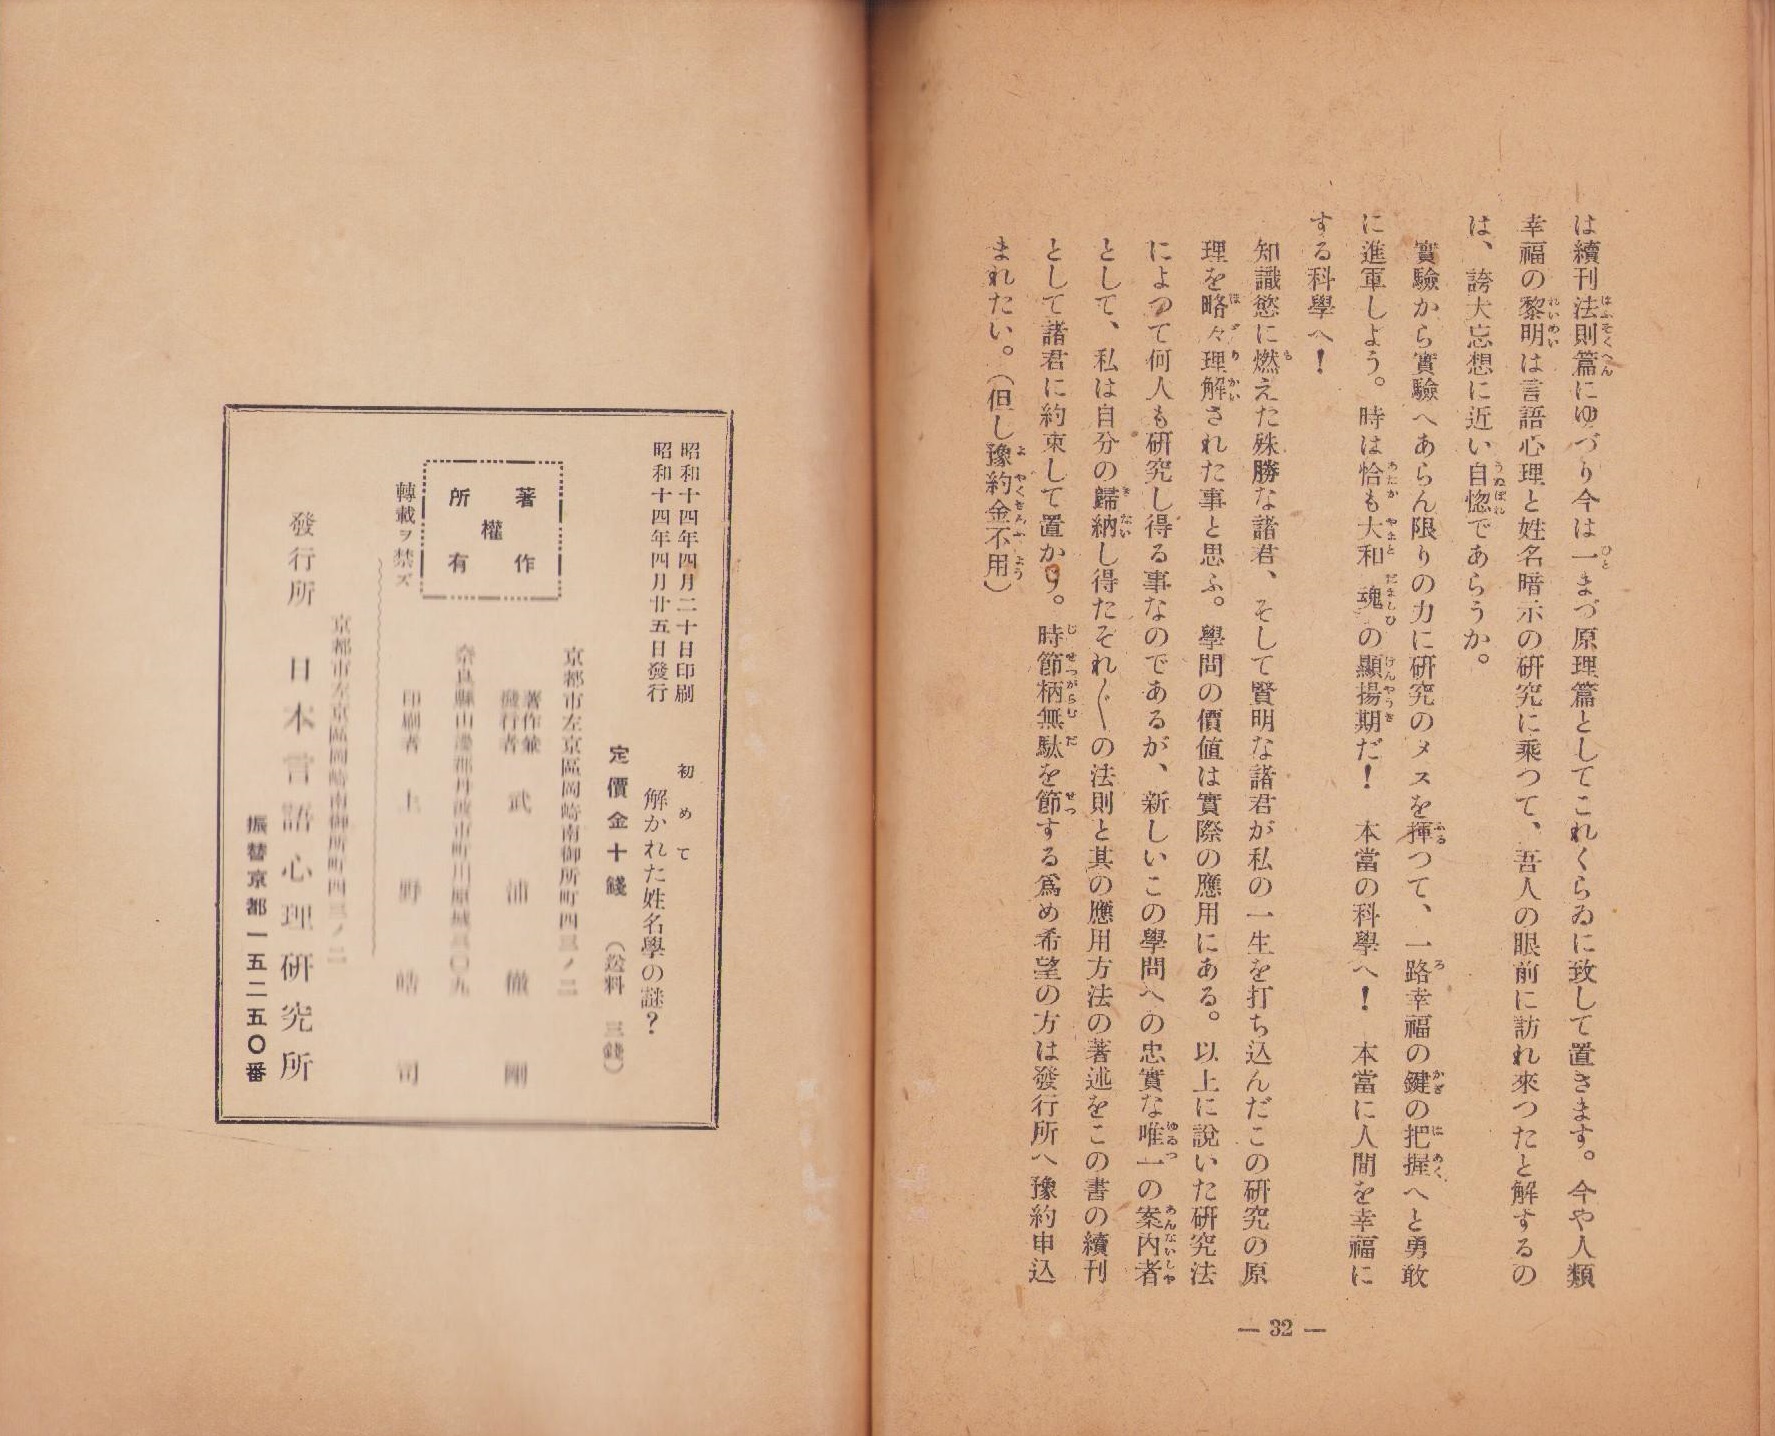 は續刊法則篇にゆづり今は一まづ原理篇としてこれくらゐに致して置きます。今や人類
幸福の黎明は言語心理と姓名暗示の研究に乘つて、吾人の眼前に訪れ來つたと解するの
は、誇大忘想に近い自惚であらうか。
實驗から實驗へあらん限りの力に研究のメスを揮つて、一路幸福の鍵の把握へと勇敢
に進軍しよう。時は恰も大和魂の顯揚期だ！　本當の科學へ！　本當に人間を幸福に
する科學へ！
知識慾に燃えた殊勝な諸君、そして賢明な諸君が私の一生を打ち込んだこの研究の原
理を略々理解された事と思ふ。學問の價値は實際の應用にある。以上に說いた研究法
によつて何人も研究し得る事なのであるが、新しいこの學問への忠實な唯一の案内者
として、私は自分の歸納し得たそれ〲の法則と其の應用方法の著述をこの書の續刊
として諸君に約束して置かう。時節柄無駄を節する爲め希望の方は發行所へ豫約申込
まれたい。（但し豫約金不用）
— 32 —
昭和十四年四月二十日印刷
昭和十四年四月廿五日發行
初めて
解かれた姓名學の謎？
定價金十錢　（送料　三錢）
京都市左京區岡崎南御所町四三ノ二
著作兼
發行者　武浦徹剛
奈良縣山邊郡丹波市町川原城三〇九
印刷者　上野皓司
著作
權
所有
轉載ヲ禁ズ
京都市左京區岡崎南御所町四三ノ二
發行所　日本言語心理研究所
振替京都一五二五〇番